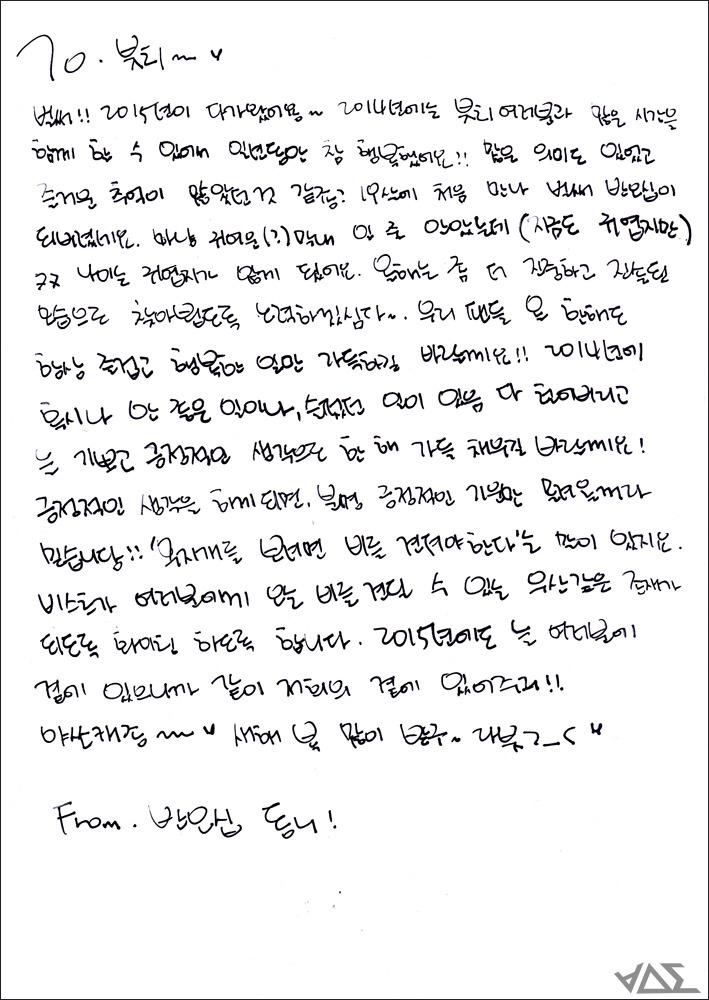 To. 뷰티~♥
벌써!! 2015년이 다가왔어용~ 2014년에는 뷰티 여러분과 많은 시간을
함께 할 수 있어서 일년동안 참 행복했어요!! 많은 의미도 있었고
즐거운 추억이 많았던것 같죵? 19살에 처음 만나 벌써 반오십이
되버렸네요. 마냥 귀여운(?)막내 일 줄 알았는데 (지금도 귀엽지만)
ㅋㅋ 나이는 귀엽지가 않게 됐어요. 올해는 좀 더 진중하고 진솔된
모습으로 찾아뵙도록 노력하겠심다~. 우리 팬들 올 한해도
항상 즐겁고 행복한 일만 가득하길 바랄께요!! 2014년에
혹시나 안 좋은 일이나, 슬펐던 일이 있음 다 털어버리고
늘 기쁘고 긍정적인 생각으로 한 해 가득 채우길 바랄께요!
긍정적인 생각을 함께 되면, 분명 긍정적인 기운만 몰려올꺼라
믿습니당!! '무지개를 보려면 비를 견뎌야한다'는 말이 있지요.
비스트가 여러분에게 오늘 비를 견딜 수 있는 우산같은 존재가
되도록 화이팅 하도록 합니다. 2015년에도 늘 여러분에
곁에 있으니까 같이 저희의 곁에 있어주기!!
약속해줭~~♥ 새해 복 많이 받구~ 다뷰ㄱ_< ♥
From. 반오십 동니!